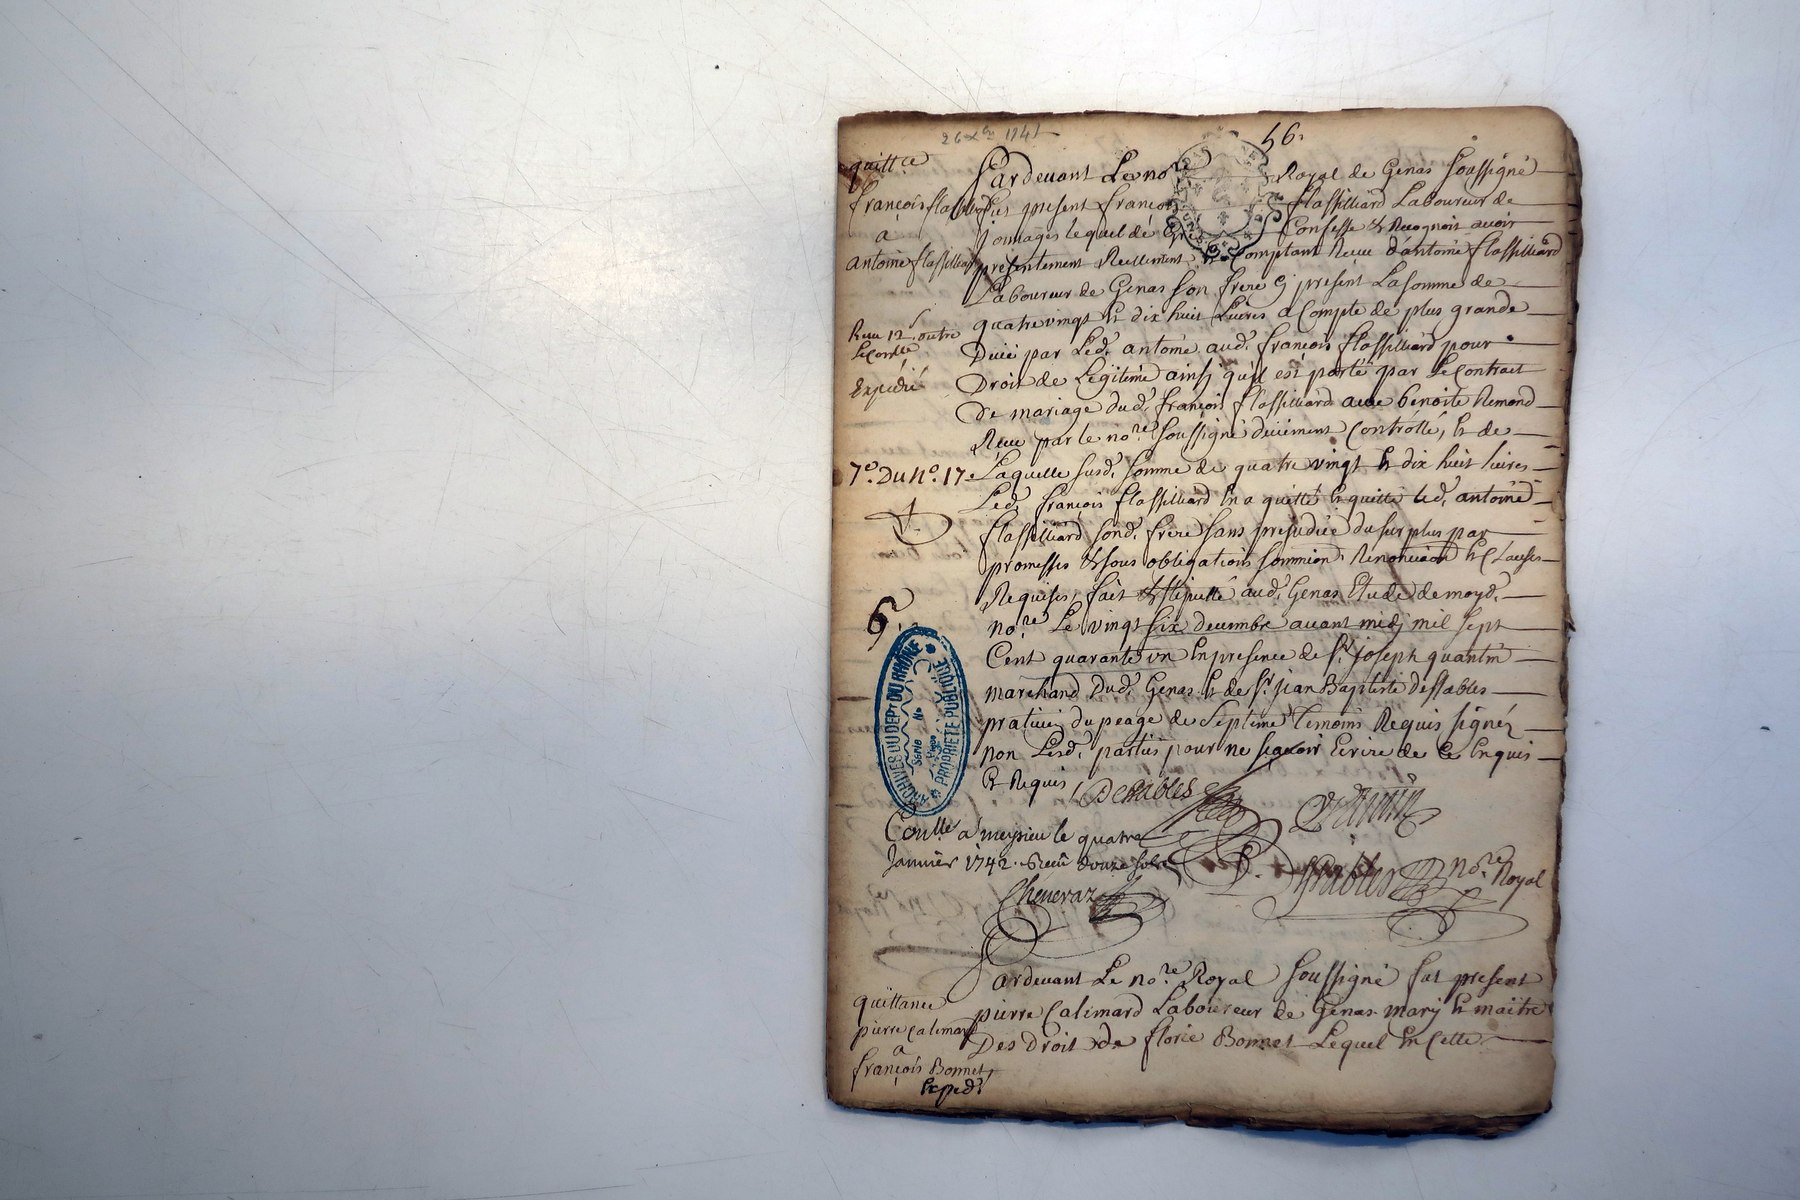 26 xbre 1741
56.
quitt.ce
françois flassilliard
a
antoine flassilliard
Reçu 12 s. outre
le Conlle
Expédié
7e. Du No. 17
6.
Pardevant Le no.re Royal de Genas soussigné
fut present françois flassilliard Laboureur de
Jonnages lequel de gré Confesse & Recognoit avoir
presentement Reellement & Comptant Receu d'antoine flassilliard
Laboureur de Genas son frere cy present La somme de
quatre vingt & dix huit Livres a Compte de plus grande
Duüe par Led. antoine aud. françois flassilliard pour
Droit de Legitime ainsy qu'il est porté par le Contract
de mariage dud. françois flassilliard avec benoite Remond
Receu par le no.re soussigné deüement Controllé, & de
Laquelle susd. somme de quatre vingt & dix huit livres
Led. françois flassilliard en a quitté & quitte led. antoine
flassilliard sond. frere sans prejudice du surplus par
promesses & sous obligations Renon & Clauses
Requises, fait & stipullé aud. Genas Etude de moyd.
no.re Le vingt six decembre avant midy mil sept
Cent quarante un en presence de sr. joseph quantin
marchand Dud. Genas & de sr. jean Baptiste destables
praticien du peage de Septeme temoins Requis signéz
non Lesd. parties pour ne sçavoir Ecrire de ce Enquis
& Requis
Destables
quantin
Destables no.re Royal
Conllé a meyzieu le quatre
Janvier 1742. Receu douze sols
Cheneraz
ARCHIVES DU DEPT DU RHÔNE
Série No
PROPRIETE PUBLIQUE
Pardevant Le no.re Royal soussigné fut present
pierre Calimard Laboureur de Genas mary & maitre
Des droit de florie Bonnet Lequel En Cette
quittance
pierre calimard
a
françois Bonnet
Exped.